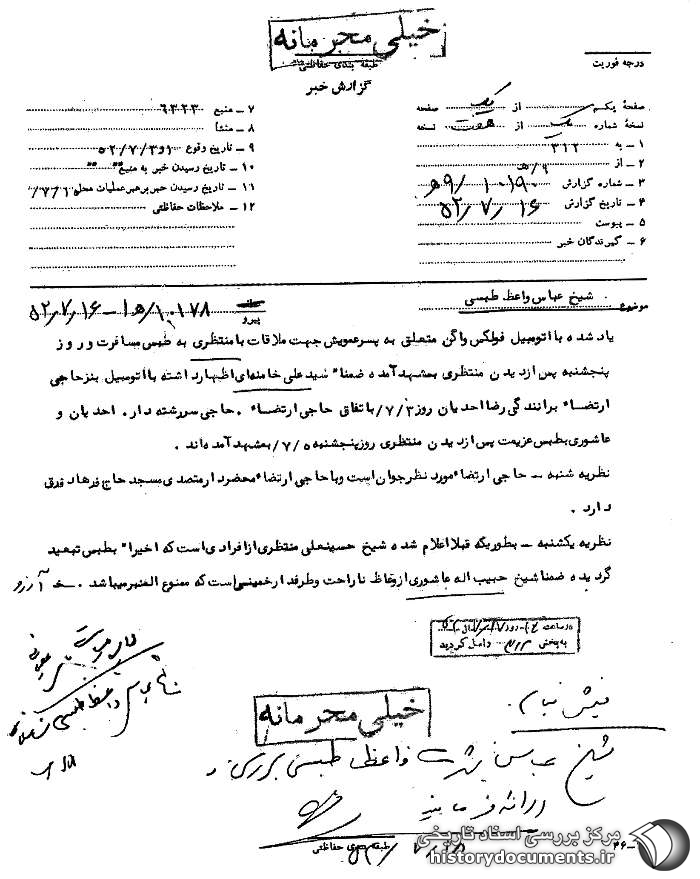 خیلی محرمانه
طبقه بندی حفاظتی
گزارش خبر
درجه فوریت
صفحهٔ یکم از یک صفحه
نسخهٔ شماره یک از هفت نسخه
۱ - به ۳۱۲
۲ - از ۹/ه
۳ - شماره گزارش
۴ - تاریخ گزارش ۵۲/۷/۱۶
۵ - پیوست
۶ - گیرندگان خبر
۷ - منبع ۶۳۲۳
۸ - منشأ
۹ - تاریخ وقوع
۱۰ - تاریخ رسیدن خبر به منبع
۱۱ - تاریخ رسیدن خبر برهبر عملیات محل
۱۲ - ملاحظات حفاظتی
موضوع شیخ عباس واعظ طبسی
پیرو ۱۰۱۷۸/ه۱ - ۵۲/۷/۱۶
یاد شده با اتومبیل فولکس واگن متعلق به پسرعمویش جهت ملاقات با منتظری به طبس مسافرت و روز
پنجشنبه پس از دیدن منتظری بمشهد آمده ضمنا" سید علی خامنه‌ای اظهار داشته با اتومبیل بنز حاجی
ارتضاء برانندگی رضا احدیان روز ۷/۳/ با تفاق حاجی ارتضاء ۰ حاجی سررشته دار ۰ احدیان و
عاشوری بطبس عزیمت پس از دیدن منتظری روز پنجشنبه ۷/۵/ بمشهد آمده‌اند ۰
نظریه شنبه - حاجی ارتضاء مورد نظر جوان است و با حاجی ارتضاء محضردار متصدی مسجد حاج فرهاد فرق
دارد ۰
نظریه یکشنبه - بطوریکه قبلا اعلام شده شیخ حسینعلی منتظری از افرادی است که اخیرا" بطبس تبعید
گردیده ضمنا شیخ حبیب اله عاشوری از وعاظ ناراحت و طرفدار خمینی است که ممنوع المنبر میباشد ۰ آرزو
در ساعت روز
به بخش ۳۱۲ واصل گردید
خیلی محرمانه
شیخ عباس واعظ طبسی بررسی و
ارائه فرمایند
طبقه بندی حفاظتی
مرکز بررسی اسناد تاریخی
historydocuments.ir